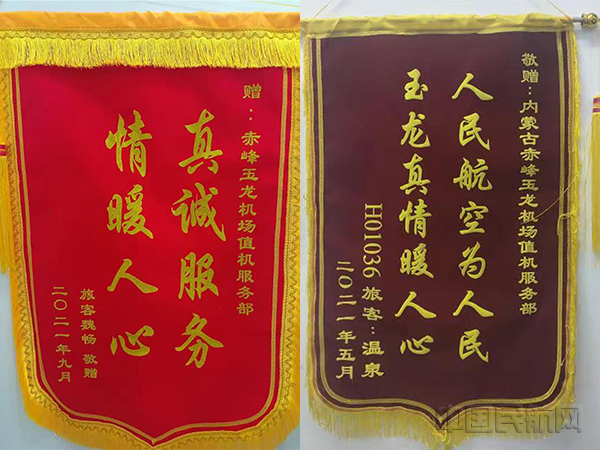 赠：赤峰玉龙机场值机服务部
真诚服务
情暖人心
旅客魏畅 敬赠
二〇二一年九月
敬赠：内蒙古赤峰玉龙机场值机服务部
人民航空为人民
玉龙真情暖人心
HO1036 旅客：温泉
二〇二一年五月
中国民航网